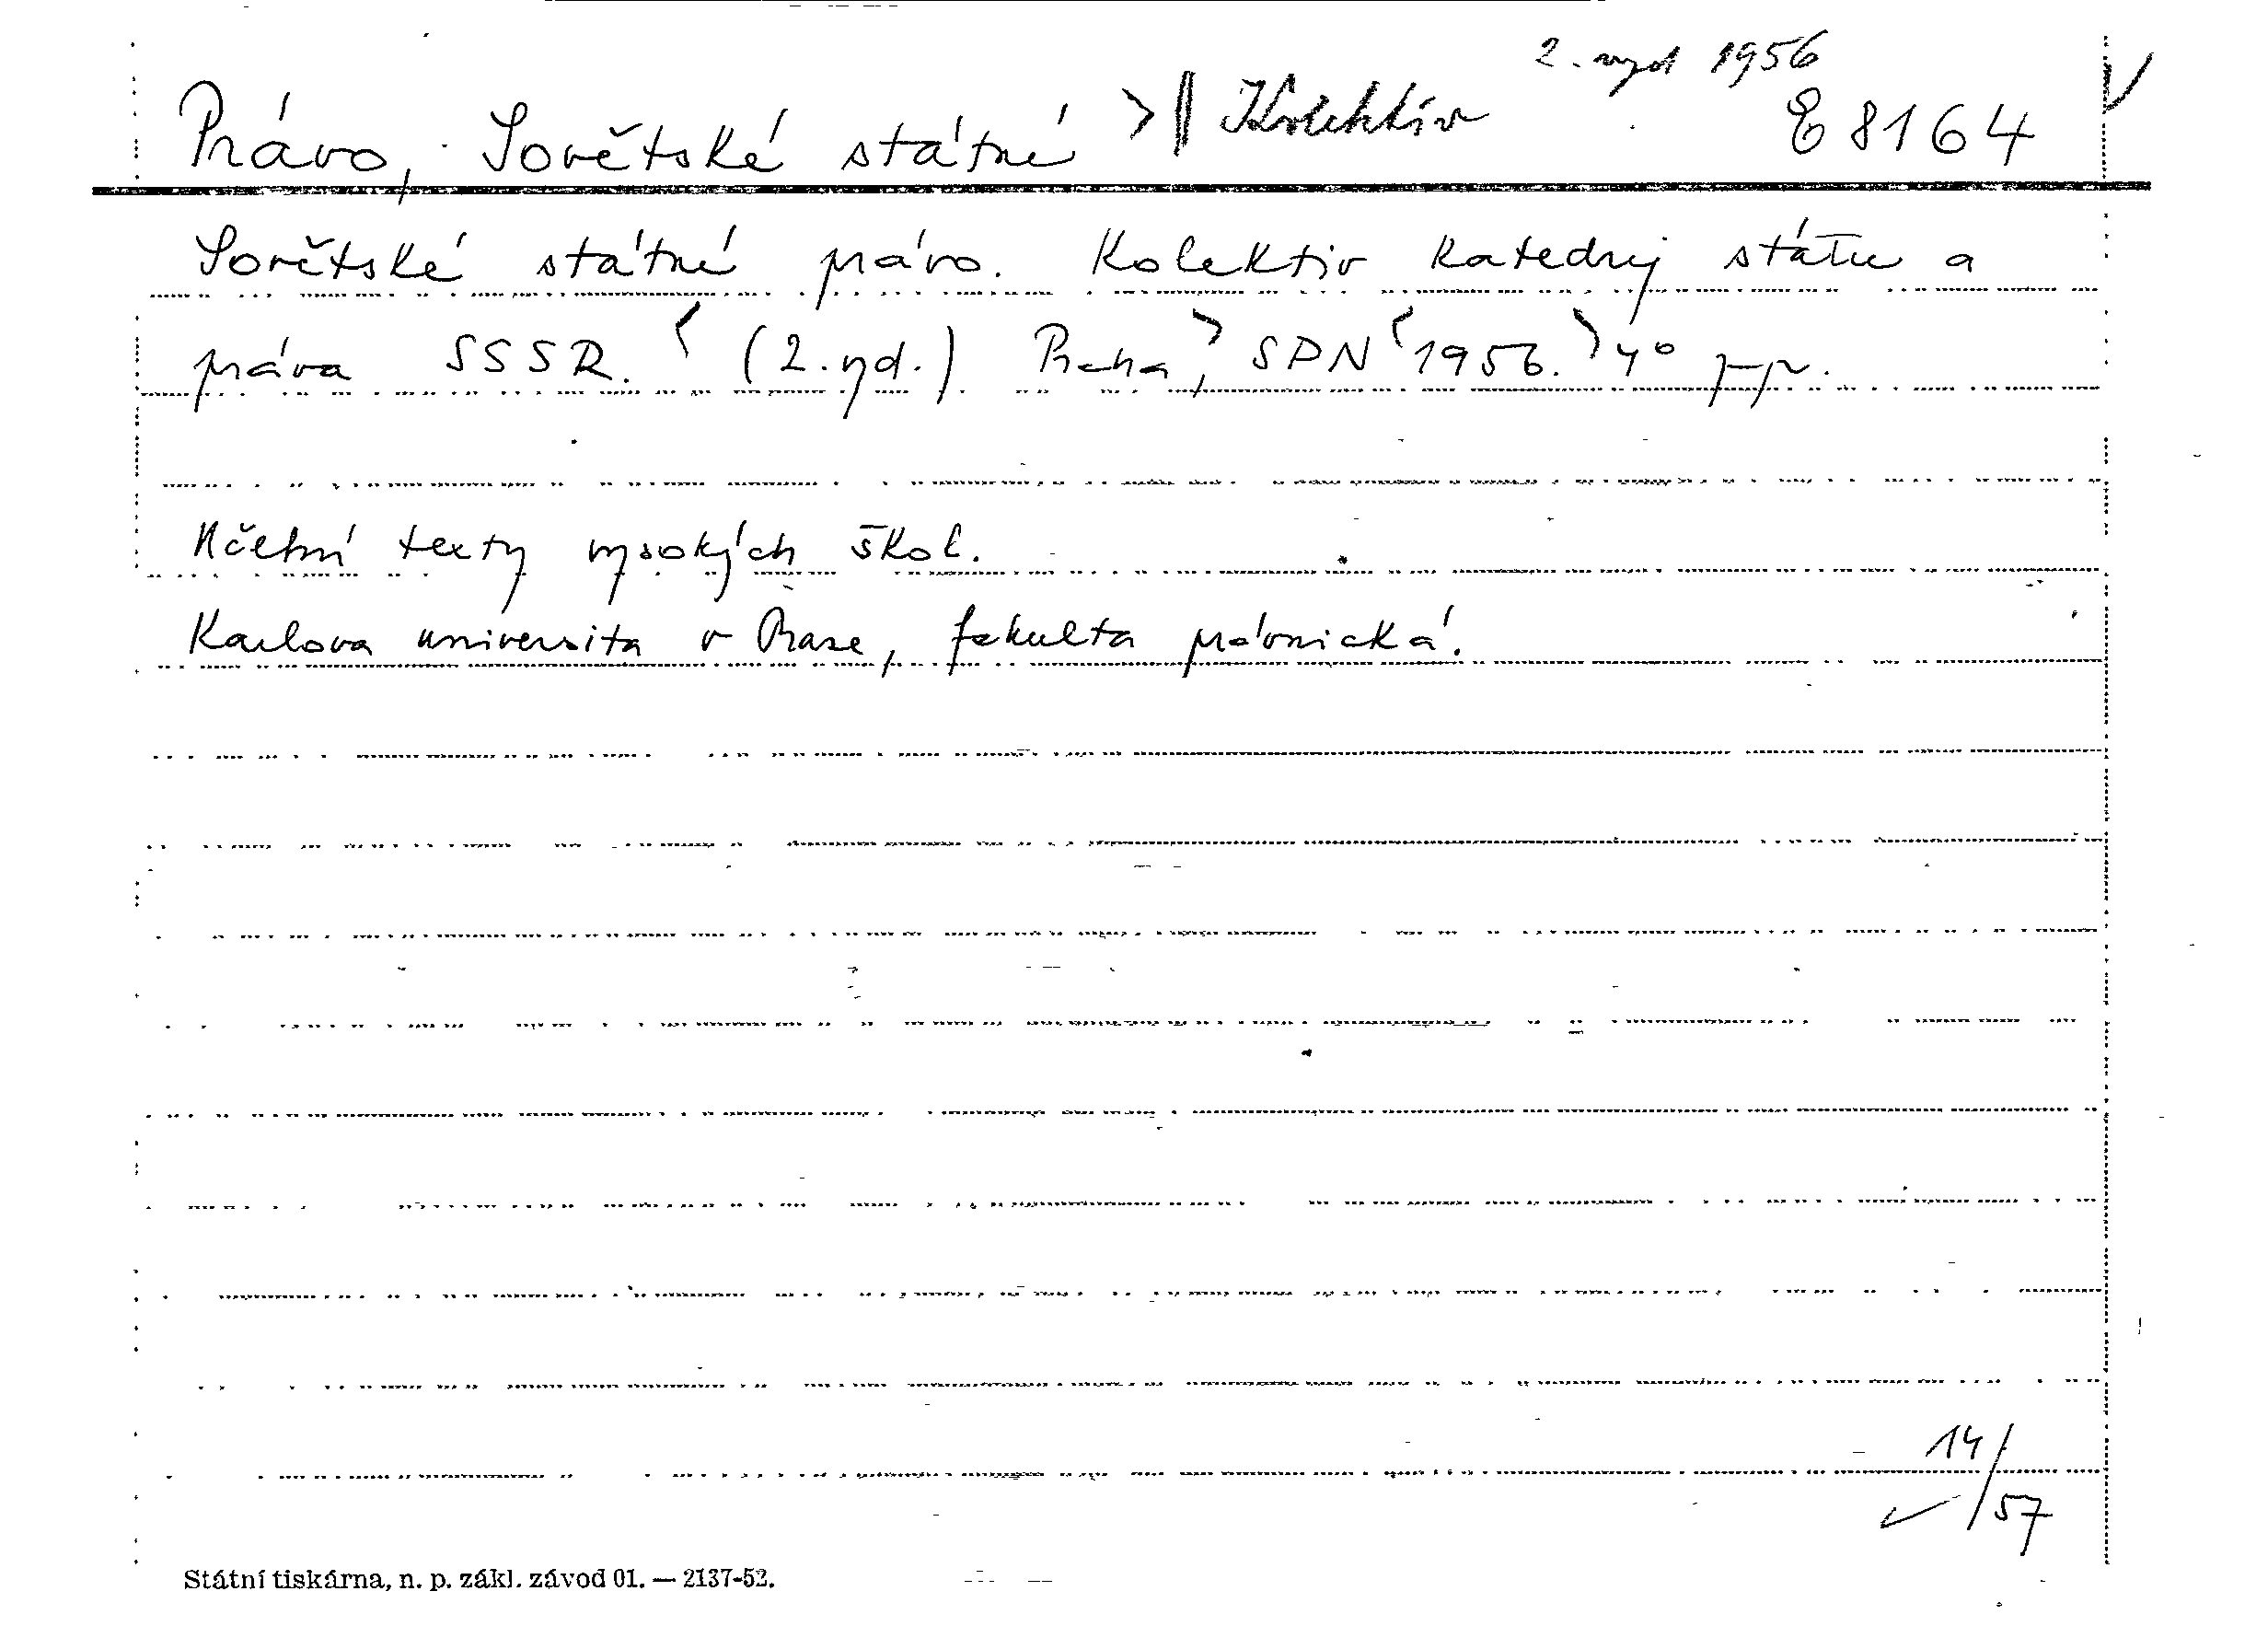 2. vyd 1956
Právo, Sovětské státné > || Kolektiv E 8164
Sovětské státné právo. Kolektiv katedry státu a
práva SSSR. < (2. vyd.) Praha, > SPN < 1956. > 4° 
Učební texty vysokých škol.
Karlova universita v Praze, fakulta právnická.
14/
57
Státní tiskárna, n. p. zákl. závod 01. — 2137-52.